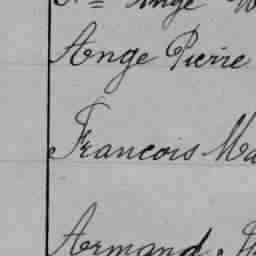 Ange
Ange Pierre
Francois Ma
Armand